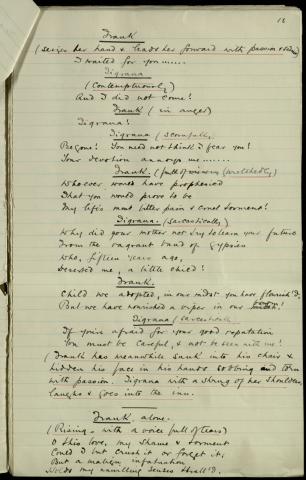 18
Frank
(seizes her hand & leads her forward with passion
I waited for you......
Tigrana
(Contemptuously)
And I did not come!
Frank (in anger)
Tigrana!
Tigrana (scornfully)
Begone! You need not think I fear you!
Your devotion annoys me.......
Frank. (full of misery) (wretchedly)
Whoever would have prophesied
That you would prove to be
My life's most bitter pain & cruel torment!
Tigrana. (sarcastically)
Why did your mother not try to learn your future
From the vagrant band of Gypsies
Who, fifteen years ago,
Deserted me, a little child!
Frank.
Child we adopted, in our midst you have flourish'd.
But we have nourished a viper in our bosom!
Tigrana (sarcastically)
If you're afraid for your good reputation
You must be careful, & not be seen with me!
(Frank has meanwhile sunk into his chair &
hidden his face in his hands sobbing and torn
with passion. Tigrana with a shrug of her shoulders,
laughs & goes into the inn.
Frank alone.
(Rising, with a voice full of tears)
O this love, my shame & torment
Could I but crush it or forget it;
But a malign infatuation
Holds my unwilling senses thrall'd.